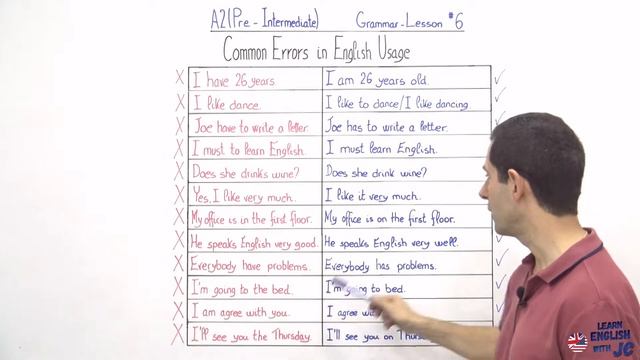 A2 (Pre - Intermediate) Grammar - Lesson #6
Common Errors in English Usage
X I have 26 years I am 26 years old. ✓
X I like dance. I like to dance/I like dancing ✓
X Joe have to write a letter. Joe has to write a letter. ✓
X I must to learn English. I must learn English.
X Does she drinks wine? Does she drink wine?
X Yes, I like very much. I like it very much.
X My office is in the first floor. My office is on the first floor.
X He speaks English very good. He speaks English very well.
X Everybody have problems. Everybody has problems. ✓
X I'm going to the bed. I'm going to bed. ✓
X I am agree with you. I agree ✓
X I'll see you the Thursday. I'll see you on
LEARN
ENGLISH
WITH JC